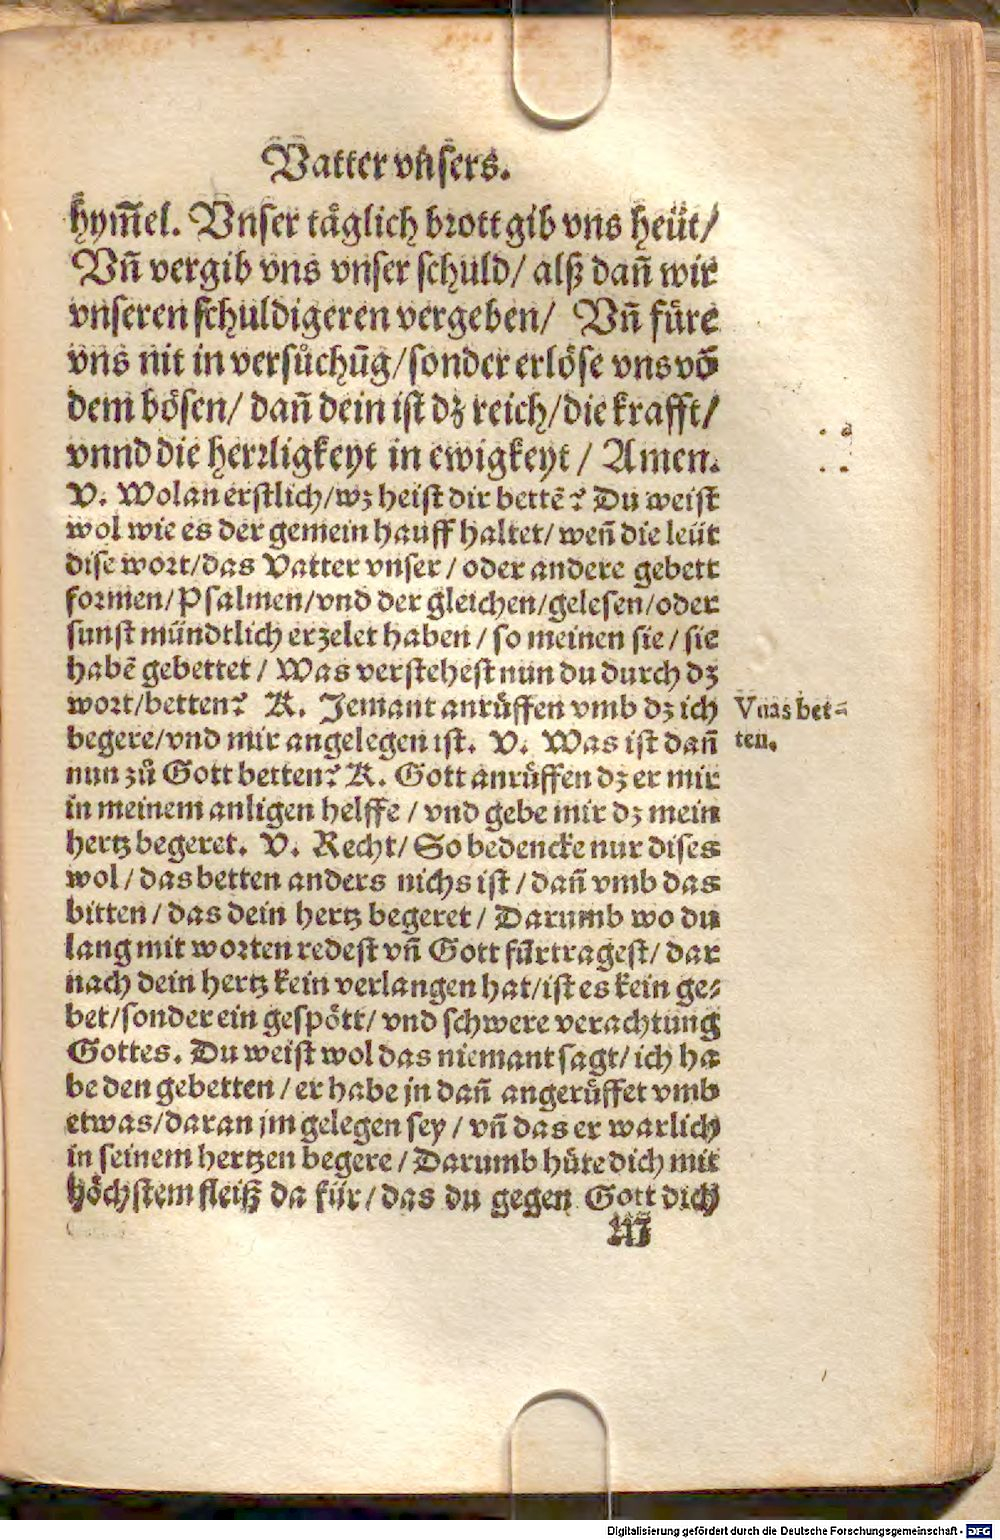 Vatter vnsers.
hym̃el. Vnser täglich brott gib vns heüt/
Vñ vergib vns vnser schuld/ alß dañ wir
vnseren schuldigeren vergeben/ Vñ füre
vns nit in versůchũg/sonder erlöse vns võ
dem bösen/ dañ dein ist dz reich/die krafft/
vnnd die herrligkeyt in ewigkeyt/ Amen.
V. Wolan erstlich/wz heist dir bettẽ? Du weist
wol wie es der gemein hauff haltet/ weñ die leüt
dise wort/das Vatter vnser/ oder andere gebett
formen/Psalmen/vnd der gleichen/gelesen/oder
sunst mündtlich erzelet haben/ so meinen sie/ sie
habẽ gebettet/ Was verstehest nun du durch dz
wort/betten? K. Jemant anrüffen vmb dz ich
begere/vnd mir angelegen ist. V. Was ist dañ
nun zů Gott betten? K. Gott anrüffen dz er mir
in meinem anligen helffe/ vnd gebe mir dz mein
hertz begeret. V. Recht/ So bedencke nur dises
wol/ das betten anders nichs ist/ dañ vmb das
bitten/ das dein hertz begeret/ Darumb wo du
lang mit worten redest vñ Gott fürtragest/ dar
nach dein hertz kein verlangen hat/ist es kein ge⸗
bet/sonder ein gespött/ vnd schwere verachtung
Gottes. Du weist wol das niemant sagt/ ich ha
be den gebetten/ er habe jn dañ angerüffet vmb
etwas/daran jm gelegen sey/ vñ das er warlich
in seinem hertzen begere/ Darumb hüte dich mit
höchstem fleiß da für/ das du gegen Gott dich
Was bet⸗
ten.
Digitalisierung gefördert durch die Deutsche Forschungsgemeinschaft - DFG